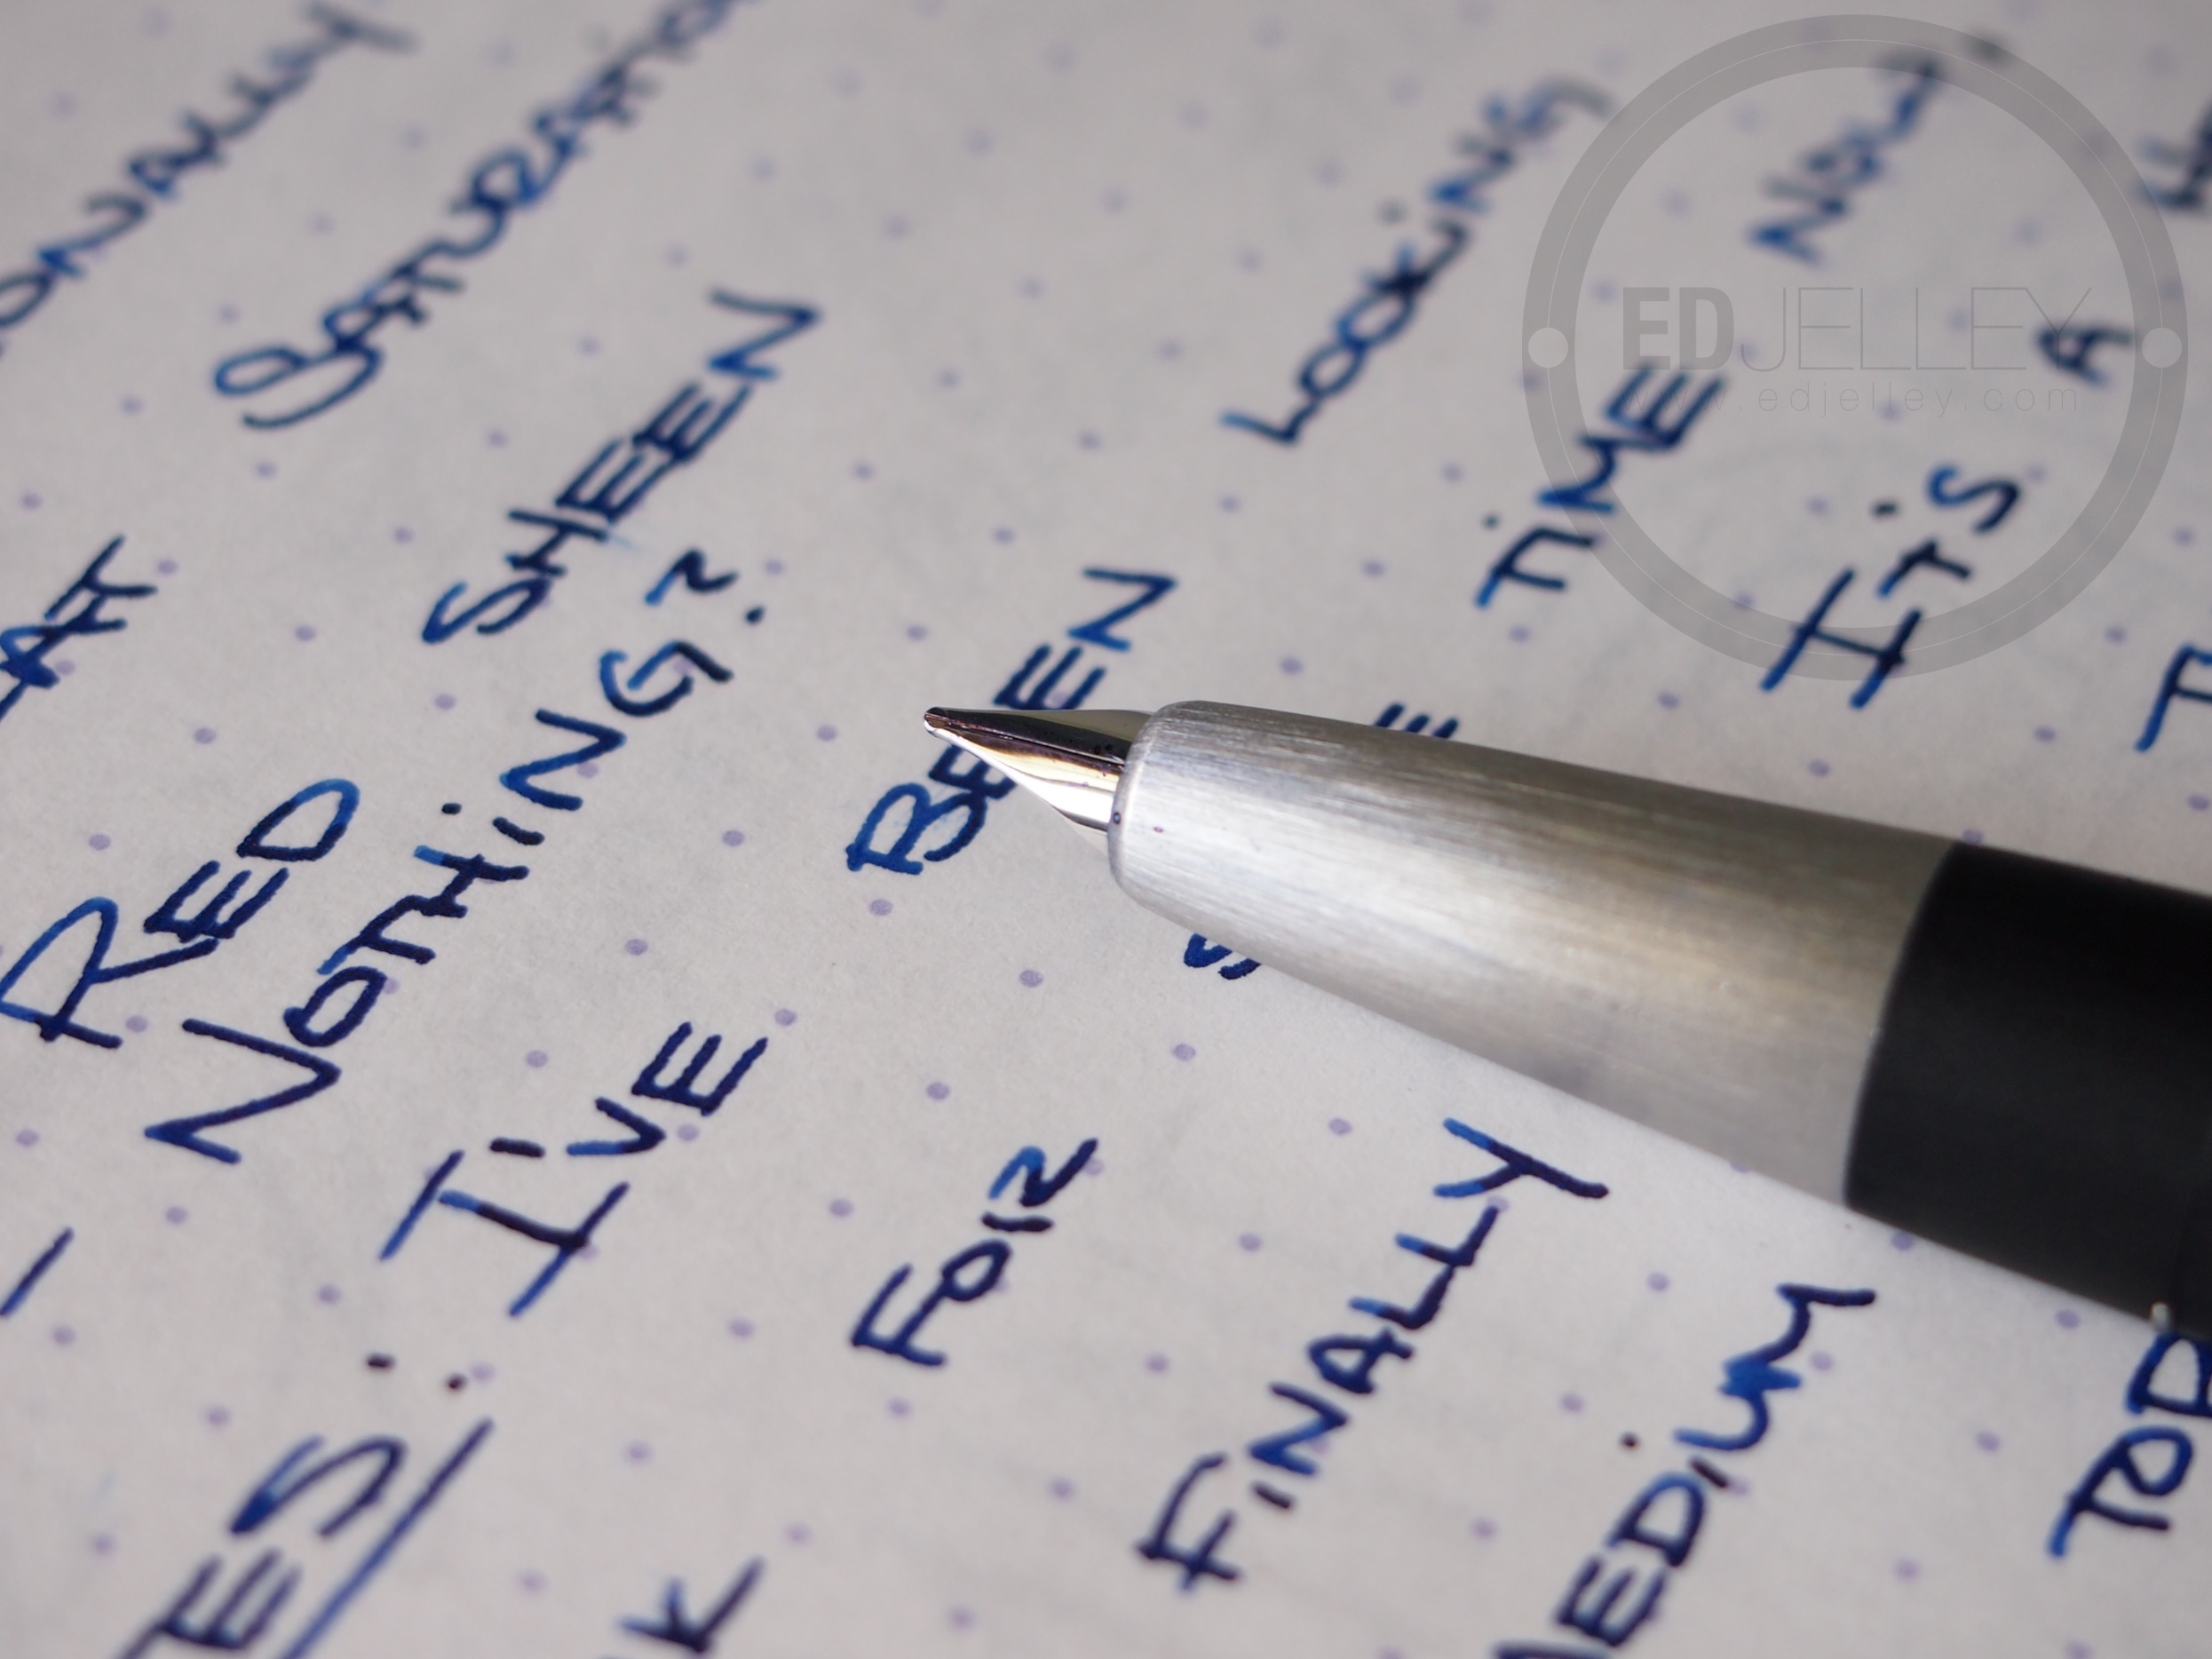 ONALLY
AT SATURATIO
RED SHEEN
– NOTHING?
TES: I'VE BEEN LOOKING
K FOR TIME NOW.
FINALLY IT'S A
MEDIUM
EDJELLEY
www.edjelley.com